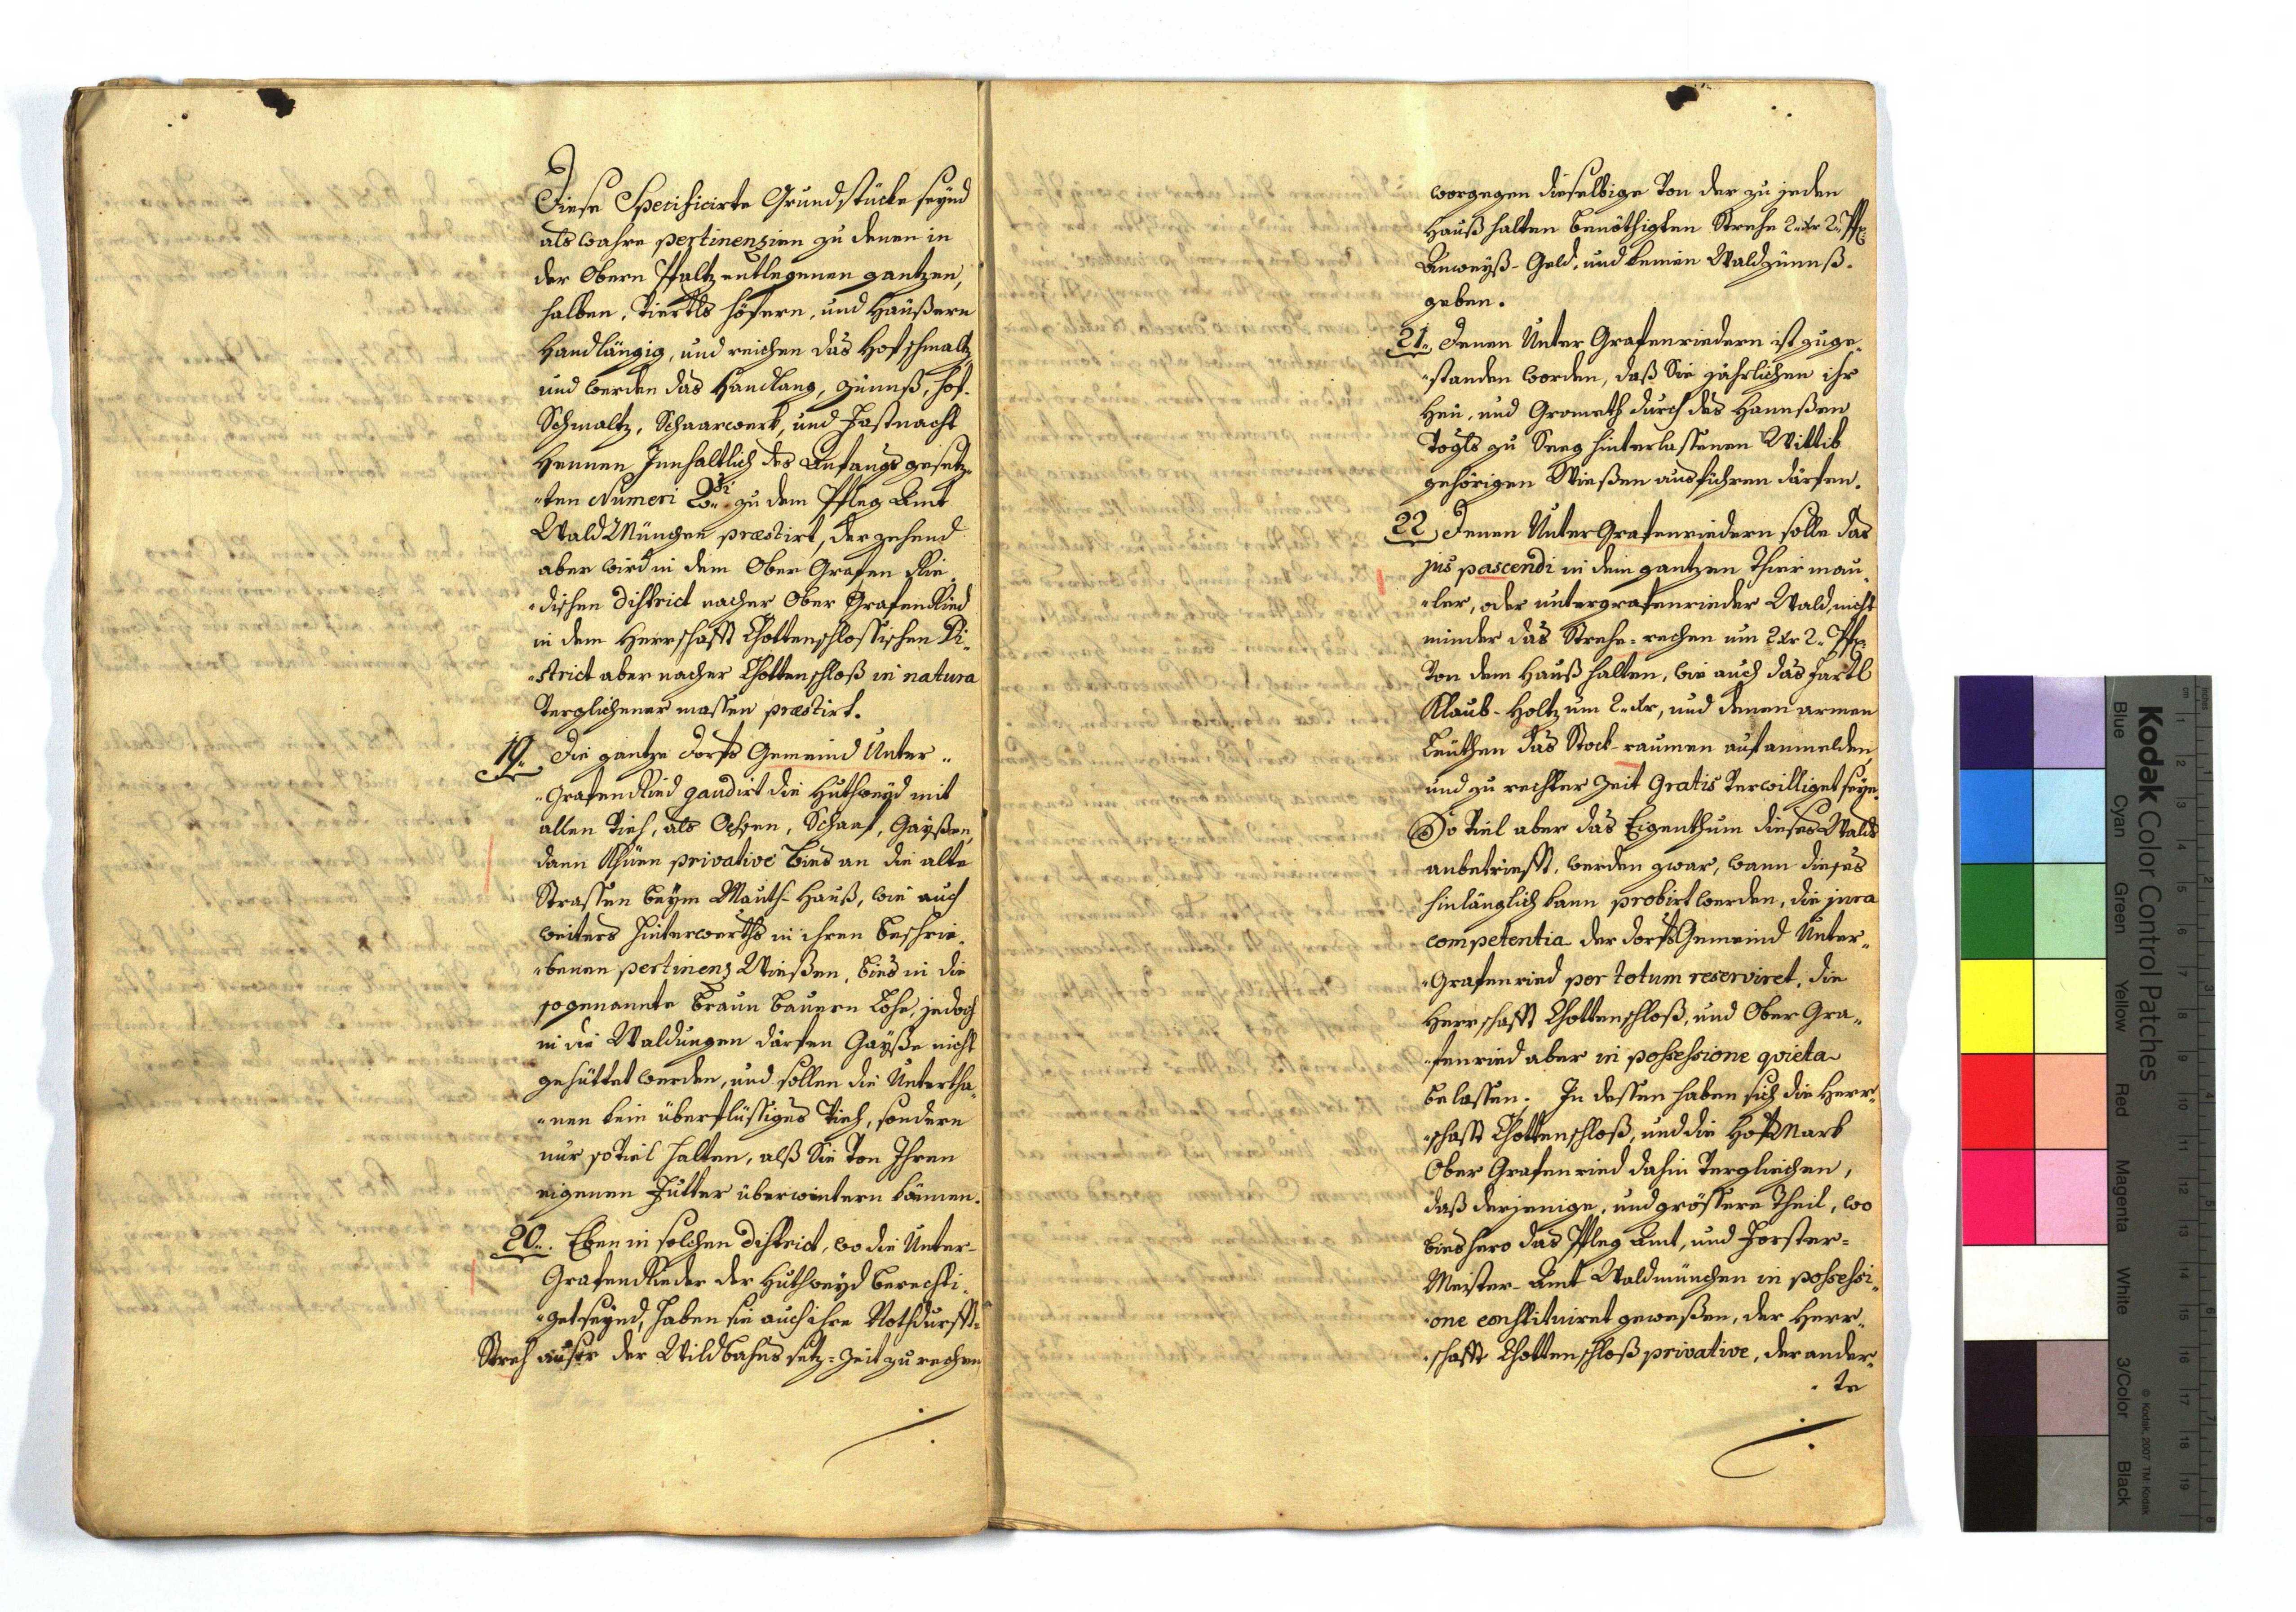 Diese Specificirte Grundstücke seynd
als wahre pertinenzien zu denen in
der Obern Pfaltz entlegenen gantzen,
halben, Viertls höfern, und Häußern
Handlängig, und reichen das Hofschmaltz,
und werden das Handlang, Zünnß, hof-
Schmaltz, Schaarwerk, und Fastnacht
Hennen Innhaltlich des Anfangs gesetz„
„ten Numeri 2di zu dem Pfleg Amt
WaldMünchen præstirt, der zehend
aber wird in dem Ober Grafen Rie„
„dischen District nacher Ober GrafenRied
in dem Herrschafft Chottenschlossischen Di„
„strict aber nacher Chottenschloß in natura
Verglichener massen præstirt.
19„ Die gantze Dorfs Gemeind Unter„
„GrafenRied gaudirt die Huthweyd mit
allen Vieh, als Ochsen, Schaaf, Gayßen,
dann Khüen privative bies an die alte
Strassen beym Mauth-Hauß, wie auch
weiters hinterwerths in ihren beschrie„
„benen pertinenz Wießen, bies in die
sogenannte Braun Bauern Lohe, jedoch
in die Waldungen därfen Gayße nicht
gehüttet werden, und sollen die Untertha„
„nen kein überflüssiges Vieh, sondern
nur so Viel halten, alß Sie Von Ihren
eigenen Futter überwintern können.
20„. Eben in solchen District, wo die Unter-
GrafenRieder der Huthweyd berechti„
„get seynd, haben sie auch ihre Nothdurfft-
Streh auser der Wildbahns setz-Zeit zu rechen
worgegen dieselbige Von der zu jeden
Haußhalten benöthigten Strehe 2„ xr 2„ Pf:
Anweyß-Geld, und keinen Waldzünnß.
geben.
21„ Denen Unter Grafenriedern ist zuge„
„standen worden, daß Sie jährlichen ihr
Heu, und Grometh durch des Hannßen
Vogls zu Seeg hinterlassenen Wittib
gehörigen Wießen ausführen därfen.
22 Denen Unter Grafenriedern solle das
jus pascendi in dem gantzen Thiermau„
„ler, oder untergrafenrieder Wald, nicht
minder das Strehe-rechen um 2 xr 2„ Pf:
Von dem Haußhalten, wie auch das
Klaub-Holtz um 2„ xr, und denen armen
Leuthen das Stock-raumen auf anmelden,
und zu rechter Zeit Gratis Verwilliget seye.
So Viel aber das Eigenthum dieses Walds
anbetriefft, werden zwar, wann dieses
hinlänglich kann probirt werden, die jura
competentia der Dorfs Gemeind Unter„
„Grafenried per totum reserviret, die
Herrschafft Chottenschloß, und Ober Gra„
„fenried aber in possessione quieta
belassen. In dessen haben sich die Herr„
„schafft Chottenschloß, und die HofMark
Ober Grafenried dahin Verglichen,
daß derjenige, und grössere Theil, wo
bieshero das Pfleg Amt, und Forster-
Meister-Amt Waldmünchen in possessi„
„one constituiret geweßen, der Herr„
„schafft Chottenschloß privative, der ander„
„te